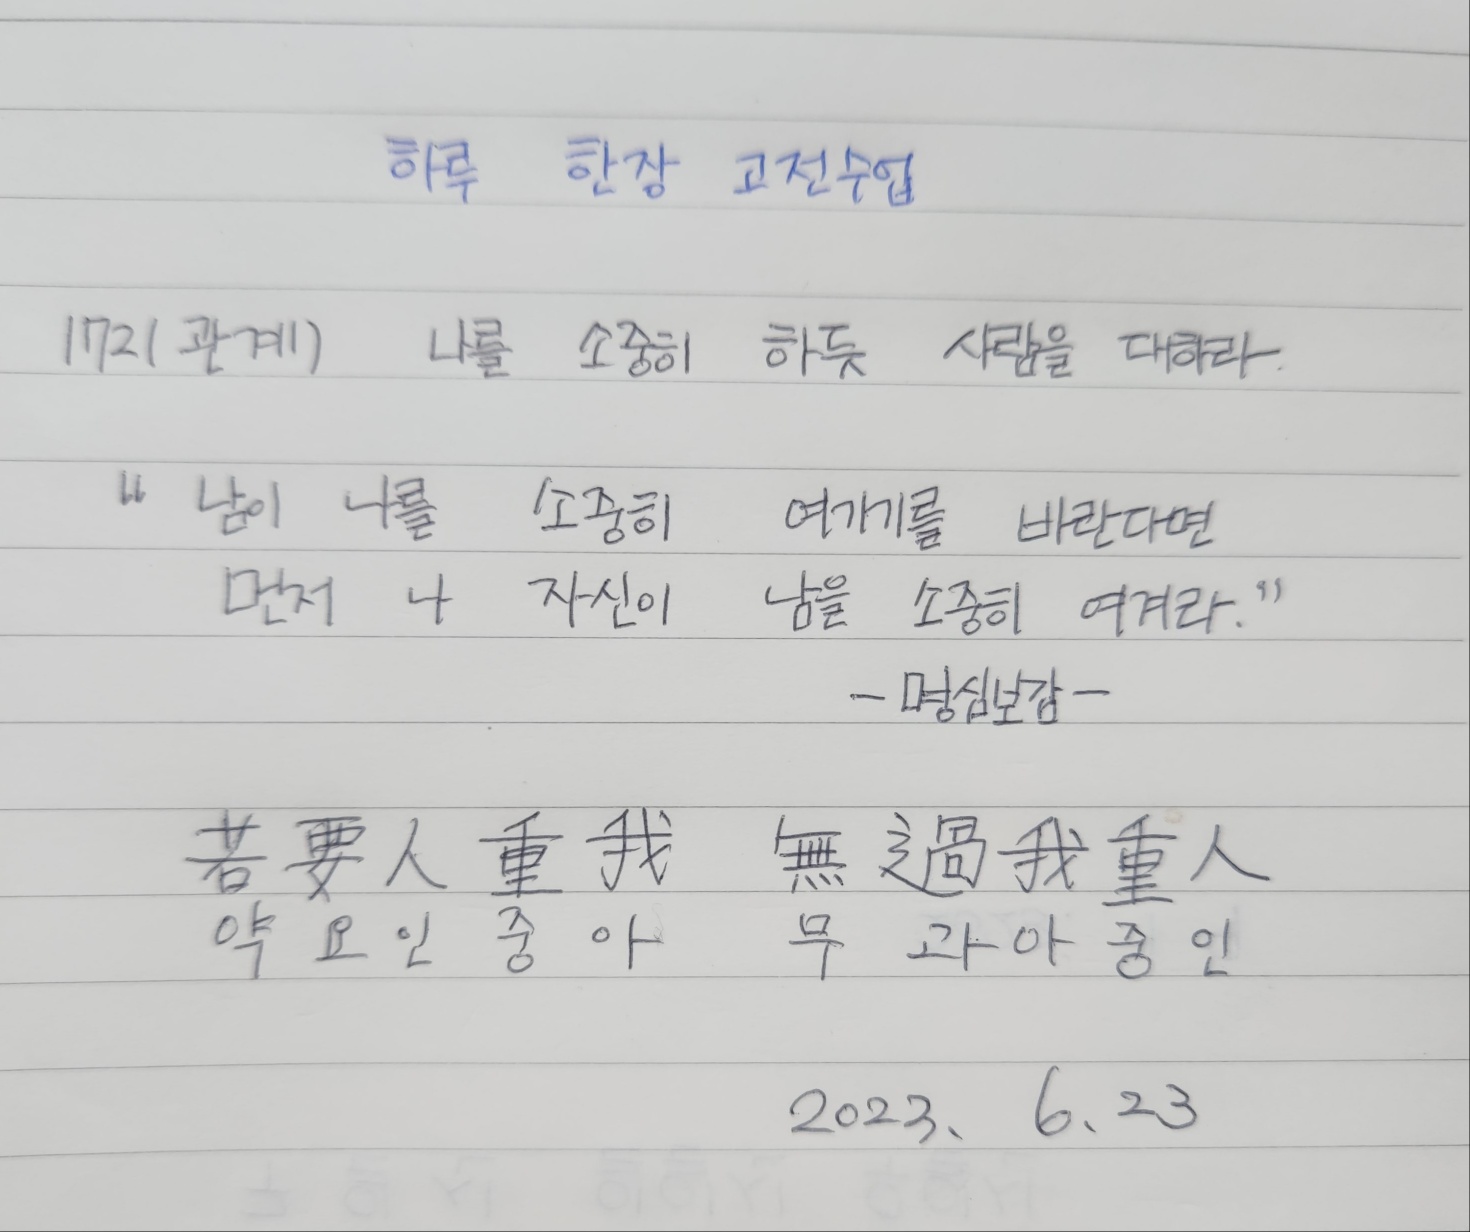 하루 한장 고전수업
172(관계) 나를 소중히 하듯 사람을 대하라.
“남이 나를 소중히 여기기를 바란다면
먼저 나 자신이 남을 소중히 여겨라.”
- 명심보감 -
若要人重我 無過我重人
약요인중아 무과아중인
2023. 6. 23